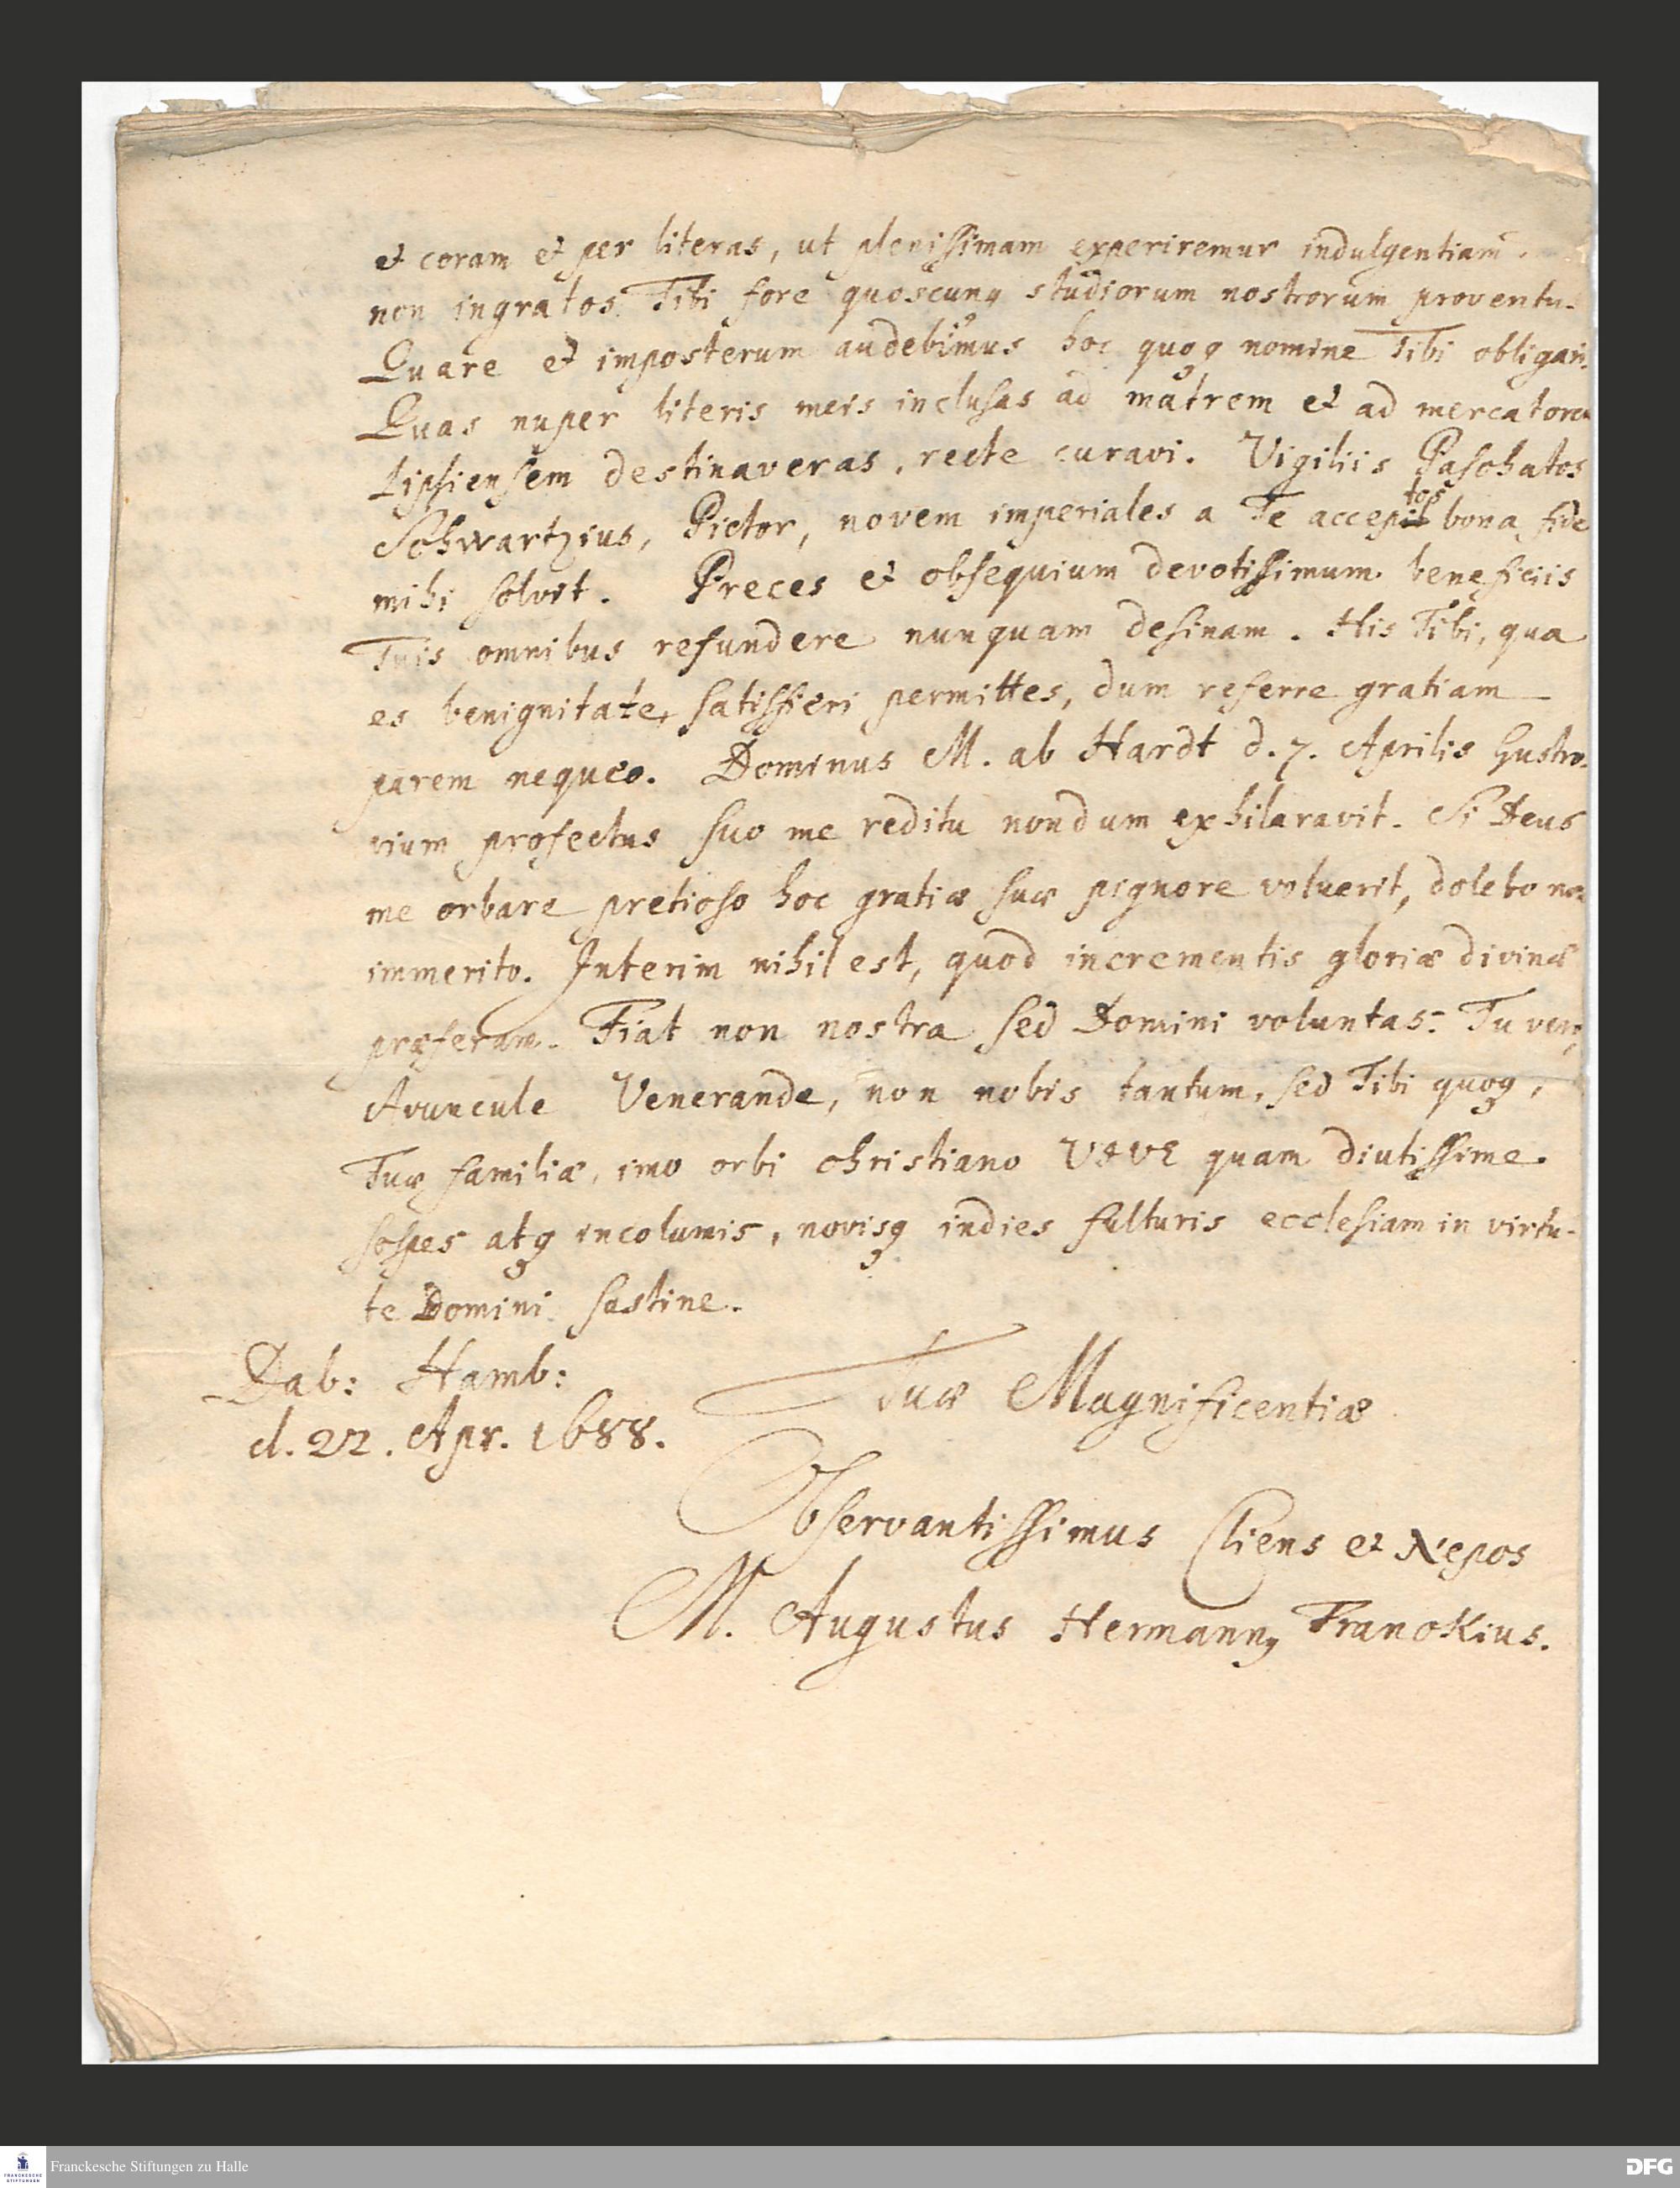 et coram et per literas, ut plenissimam experiremur indulgentiam.
non ingratos Tibi fore quoscunq studiorum nostrorum proventu-
Quare et imposterum audebimus hoc quoq nomine Tibi obligari.
Quas nuper literis meis inclusas ad matrem et ad mercatorem
Lipsiensem destinaveras, recte curavi. Vigiliis Paschatos
Schwartzius, Pictor, novem imperiales a Te acceptos bona fide
mihi solvit. Preces et obsequium devotissimum beneficiis
Tuis omnibus refundere nunquam desinam. His Tibi, qua
es benignitate, satisfieri permittes, dum referre gratiam
parem nequeo. Dominus M. ab Hardt d. 7. Aprilis Gustro-
vium profectus suo me reditu nondum exhilaravit. Si Deus
me orbare pretioso hoc gratiæ suæ pignore voluerit, dolebo non
immerito. Interim nihil est, quod incrementis gloriæ divinæ
præferam. Fiat non nostra sed Domini voluntas. Tu vero,
Avuncule Venerande, non nobis tantum, sed Tibi quoq,
Tuæ familiæ, imo orbi christiano VIVE quam diutissime
sospes atq incolumis, novisq indies fulturis ecclesiam in virtu-
te Domini sustine.
Dab: Hamb:
d. 22. Apr. 1688.
Tuæ Magnificentiæ
Observantissimus Cliens et Nepos
M. Augustus Hermannq Franckius.
FRANCKESCHE STIFTUNGEN
Franckesche Stiftungen zu Halle
DFG